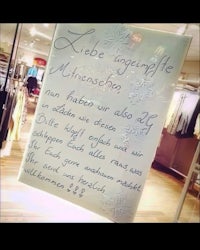 Liebe ungeimpfte
Mitmenschen,
nun haben wir also 2G
in Läden wie diesem.
Bitte klopft einfach und wir
schleppen Euch alles raus was
Ihr Euch gerne anschauen möchtet.
Ihr seid uns herzlich
willkommen!!!